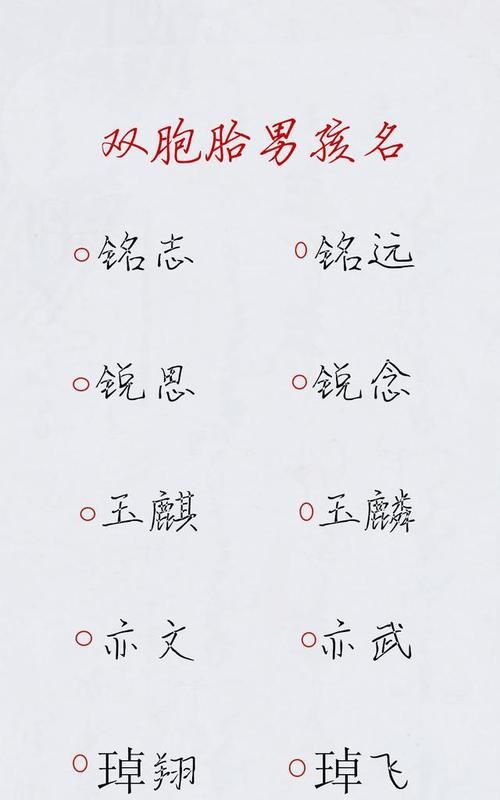 双胞胎男孩名
铭志 铭远
锐思 锐念
玉麒 玉麟
亦文 亦武
琸翔 琸飞